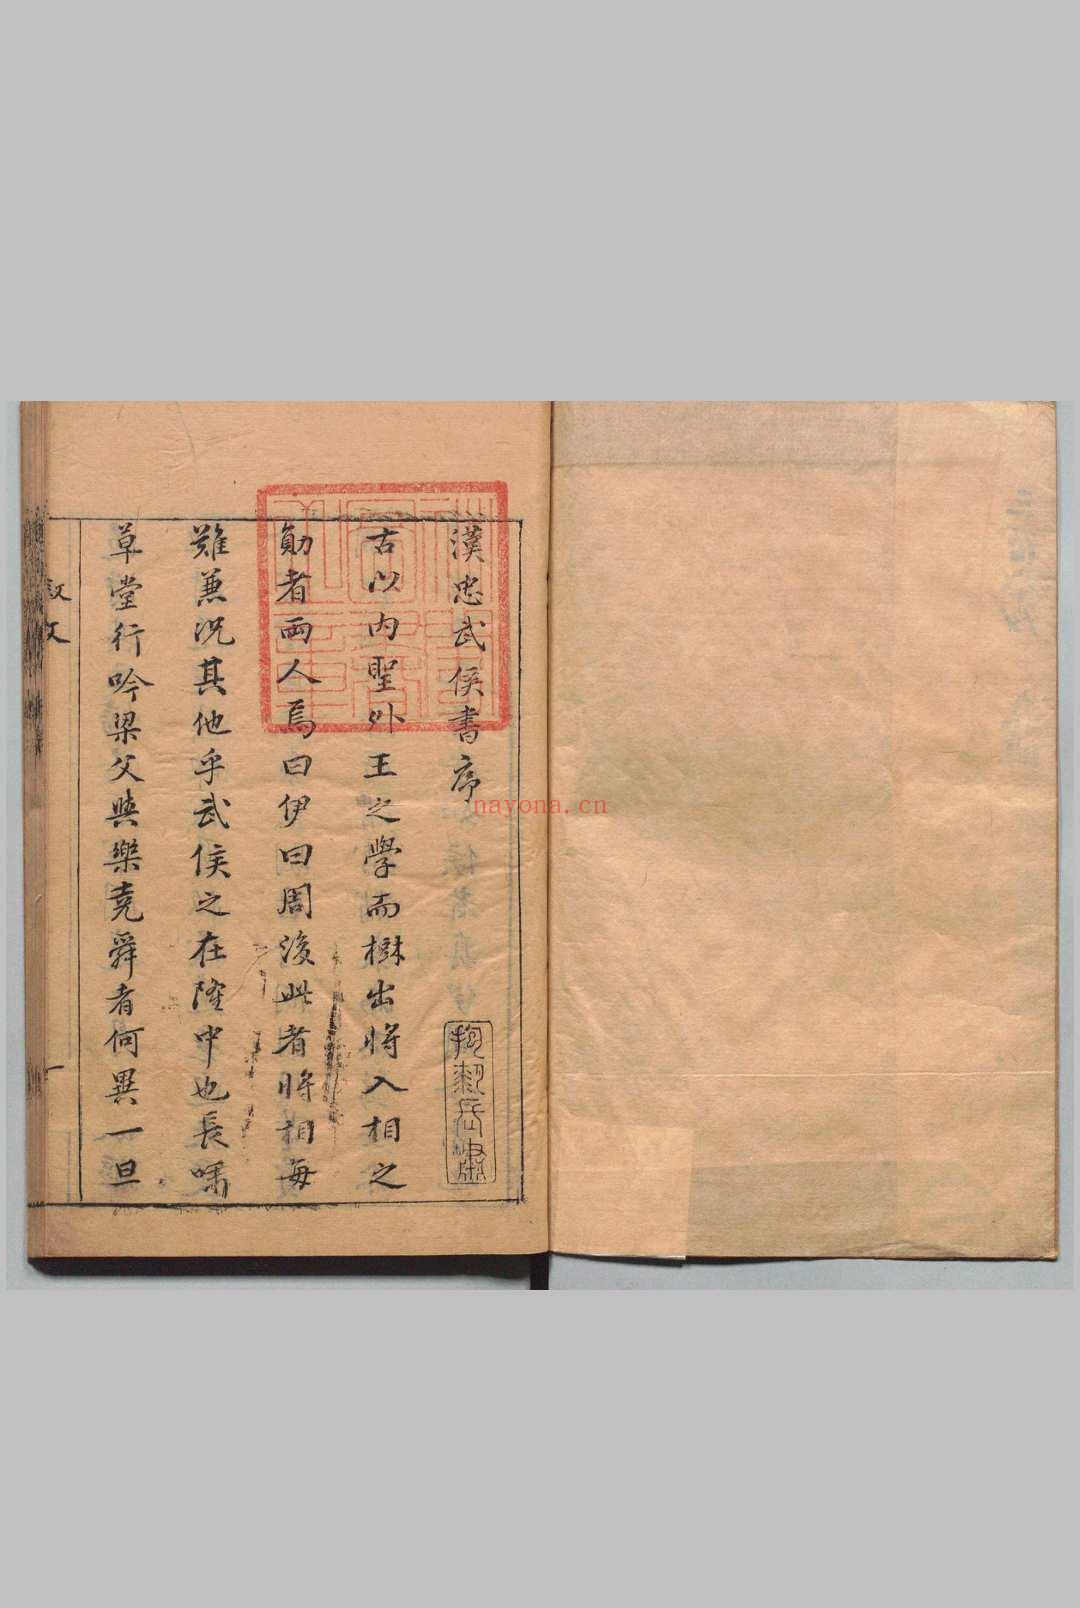 漢忠武侯書序
古以内聖外王之學而樹出將入相之
勛者兩人焉曰伊曰周後此者將相每
難兼况其他乎武侯之在隆中也長嘯
草堂行吟梁父與樂堯舜者何異一旦
敘文
一
nayona.cn